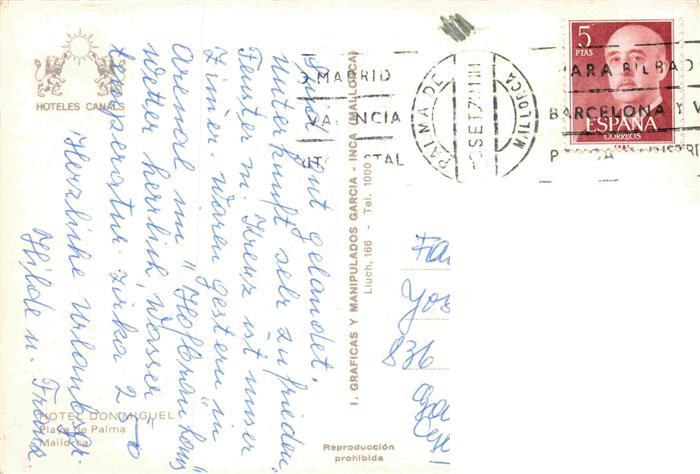 HOTELES CANALS
Sind gut gelandet.
Unterkunft sehr zufrieden
Fenster m. Kreuz ist unser
Zimmer. Waren gestern in
Arenal im "Hofbräuhaus"
Wetter herrlich, Wasser-
temperatur zirka 20
Herzliche Urlaubsgr.
Hilde u.
HOTEL DON MIGUEL
Playa de Palma
Mallorca
I. GRAFICAS Y MANIPULADOS GARCIA - INCA (MALLORCA)
Lluch, 166 - Tel. 1000
Reproducción
prohibida
O MADRID
VALENCIA
TAL
PALMA DE
MALLORCA
SET
PARA BILBAO
BARCELONA Y V
DISTRI
5
PTAS
ESPAÑA
CORREOS
836